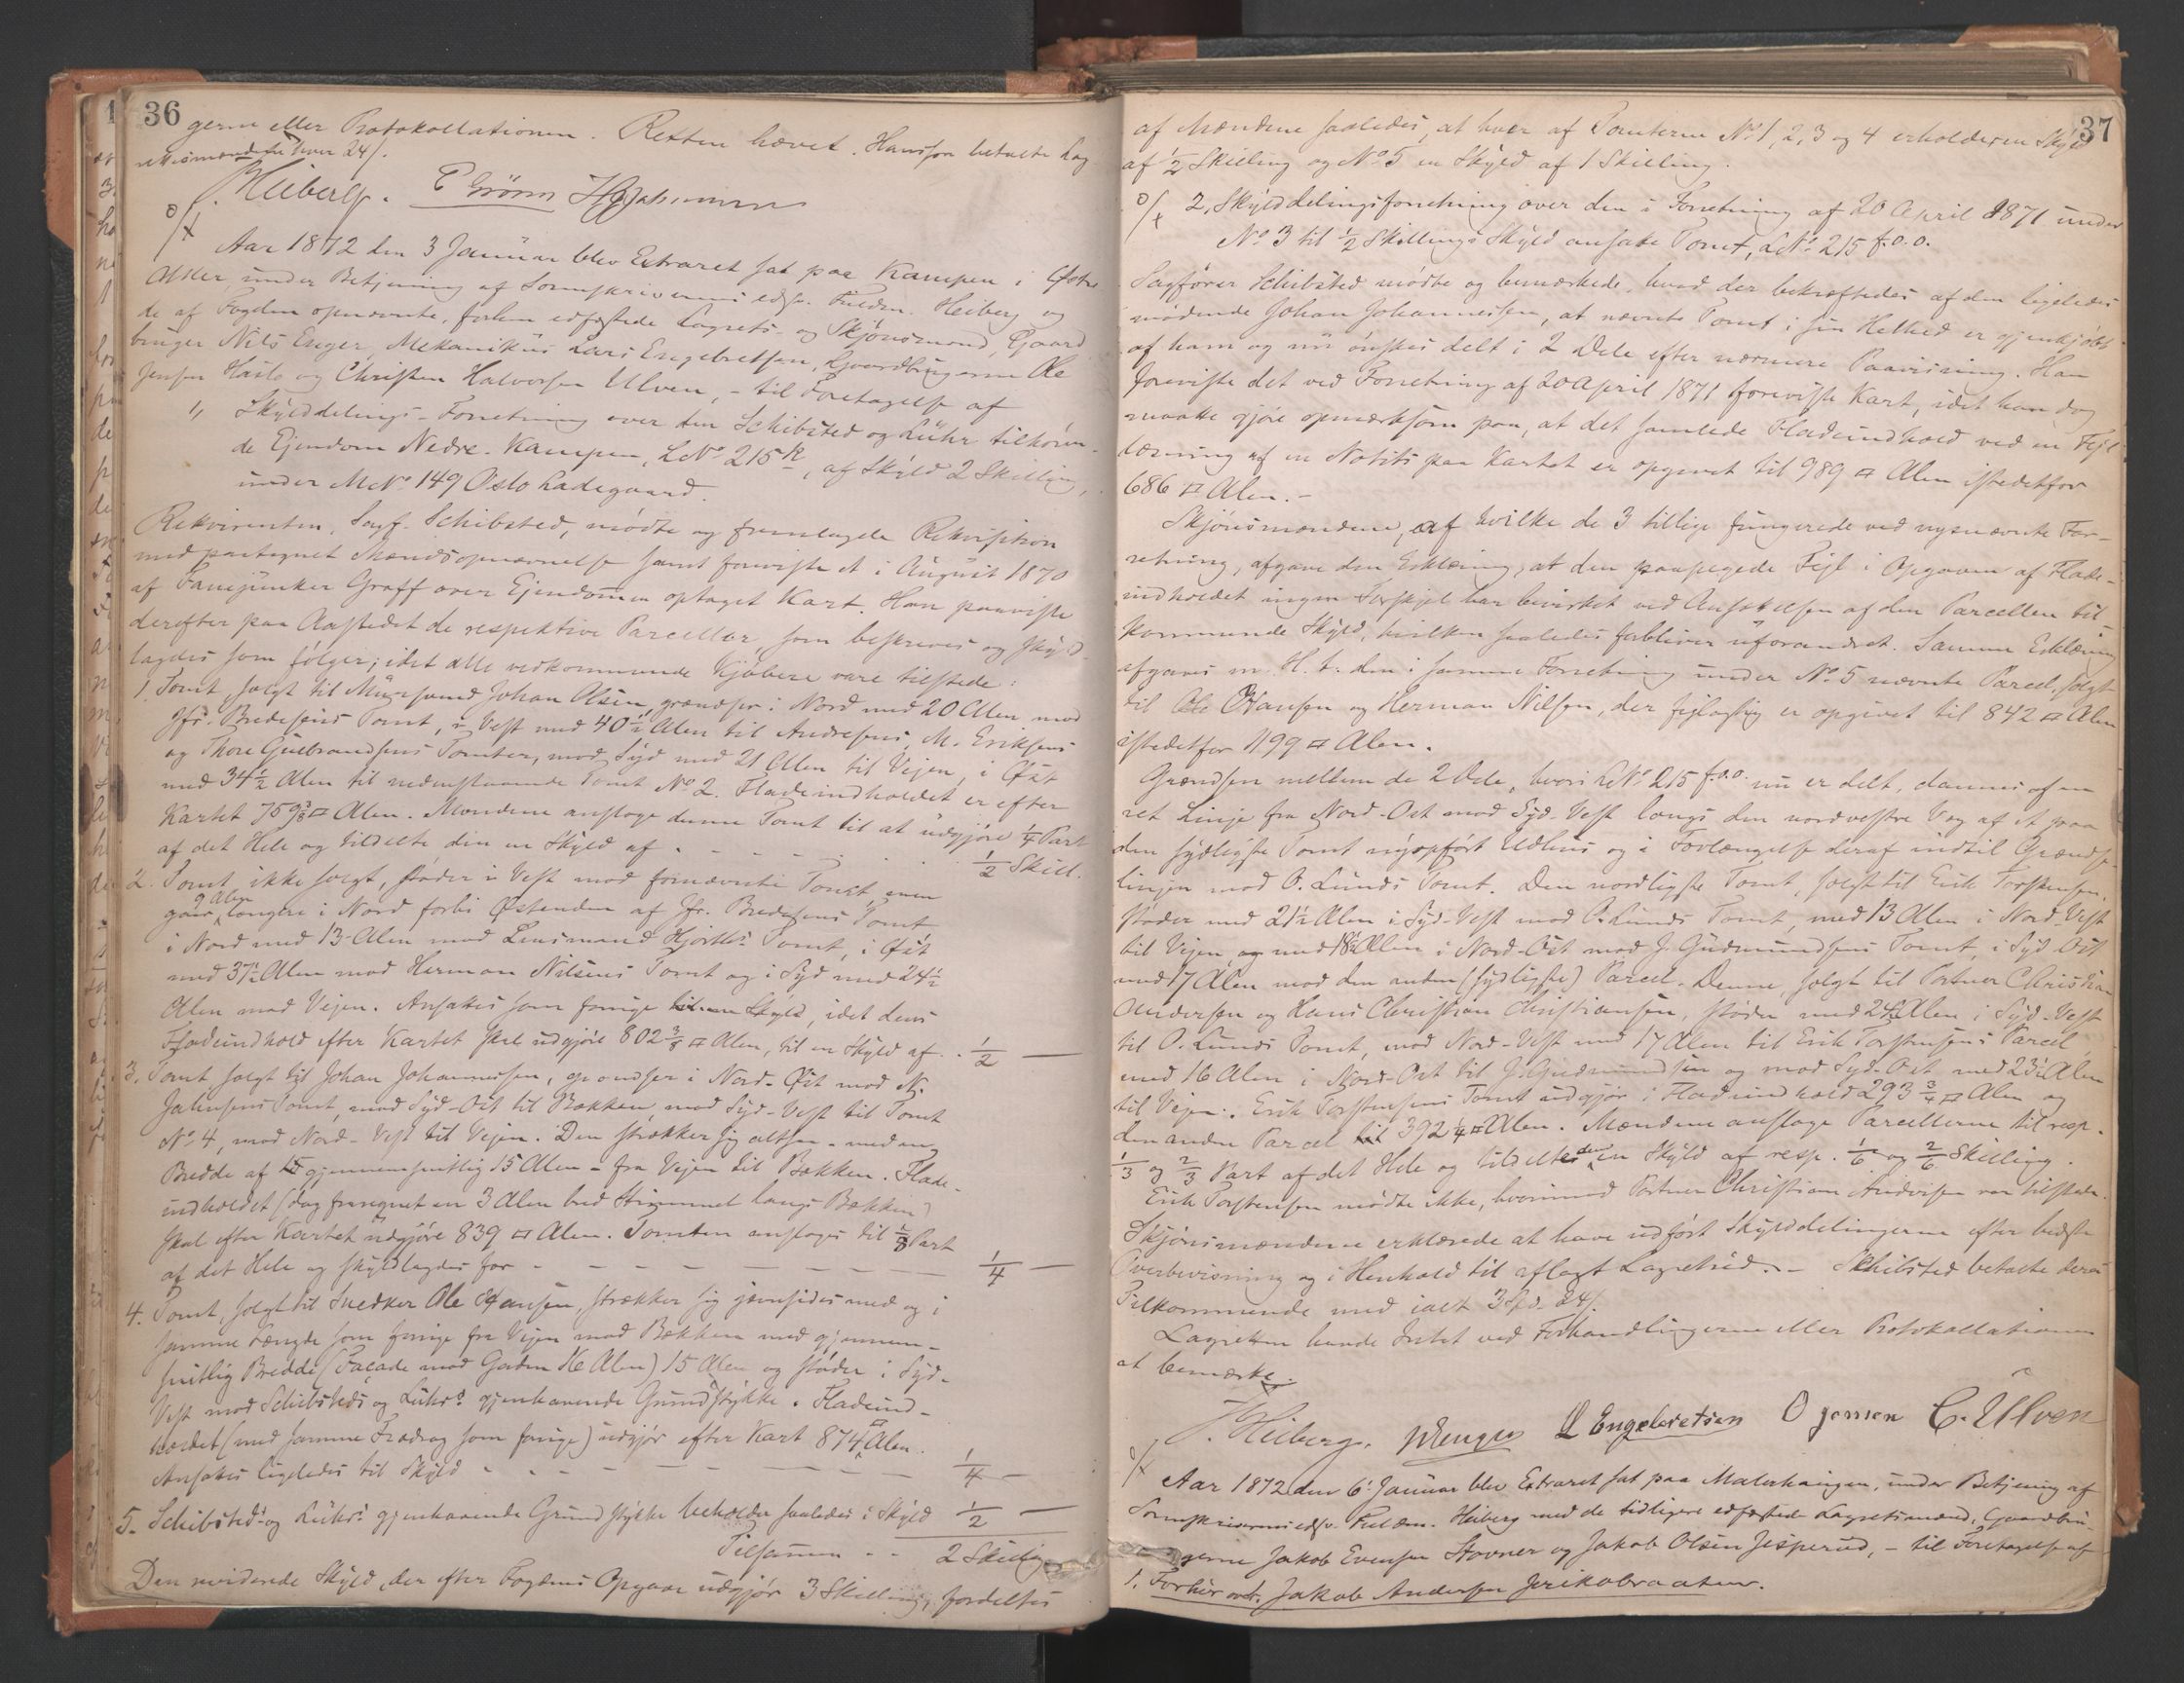 36
gerne eller Protokollationen. Retten hævet. Hansson betalte Lag
rettesmændene hver 24 s.
J. Heiberg. P Grönn H Johannesen
Aar 1872 den 3 Januar blev Extraret sat paa Kampen i Østre
Aker, under Betjening af Sorenskriverens edsv. Fuldm. Heiberg og
de af Fogden opnævnte, forhen edfæstede Lagrets- og Skjönsmænd, Gaard
bruger Nils Enger, Mekanikus Lars Engebretsen, Gaardbrugerne Ole
Jensen Hasle og Christen Halvorsen Ulven, - til Foretagelse af
1, Skylddelings-Forretning over den Schibsted og Lühr tilhören-
de Ejendom Nedre-Kampen, LNo 215 k, af Skyld 2 Skilling,
under MNo 149 Oslo Ladegaard.
Rekvirenten, Sagf. Schibsted, mödte og fremlagde Rekvisition
med paategnet Mændsopnævnelse samt foreviste et i August 1870
af Fanejunker Graff over Ejendommen optaget Kart. Han paaviste
derefter paa Aastedet de respektive Parceller, som beskreves og skyld
lagdes som fölger; idet alle vedkommende Kjöbere vare tilstede:
1. Tomt, solgt til Muursvend Johan Olsen, grændser i Nord med 20 Alen mod
Jfr. Bredesens Tomt, i Vest med 40½ Alen til Andresens, M. Eriksens
og Thore Gulbrandsens Tomter, mod Syd med 21 Alen til Vejen, i Øst
med 34½ Alen til nedenstaaende Tomt No 2. Fladeindholdet er efter
Kartet 759⅜ □ Alen. Mændene ansloge denne Tomt til at udgjöre ¼ Part
af det Hele og tildelte den en Skyld af . - - - - ½ Skill.
2. Tomt, ikke solgt, stöder i Vest mod fornævnte Tomt, men
gaar 9 Alen længere i Nord forbi Østenden af Jfr. Bredesens Tomt,
i Nord med 13 Alen mod Lensmand Hjorths Tomt, i Øst
med 37½ Alen mod Herman Nilsens Tomt og i Syd med 24½
Alen mod Vejen. Ansattes som forrige til en Skyld, idet dens
Fladeindhold efter Kartet skal udgjöre 802⅜ □ Alen, til en Skyld af . . ½ —
3. Tomt solgt til Johan Johannessen, grændser i Nord-Øst mod N.
Jahnsens Tomt, mod Syd-Ost til Bækken, mod Syd-Vest til Tomt
No 4, mod Nord-Vest til Vejen. Den strækker sig altsaa - med en
Bredde af 15 gjennemsnitlig 15 Alen - fra Vejen til Bækken. Flade-
indholdet (dog fraregnet en 3 Alen bred Strimmel langs Bækken)
skal efter Kartet udgjöre 839 □ Alen. Tomten ansloges til ⅛ Part
af det Hele og skyldlagdes for - - - - — — — ¼ —
4. Tomt, solgt til Snedker Ole Hansen, strækker sig jævnsides med og i
samme Længde som forrige fra Vejen mod Bækken med gjennem-
snitlig Bredde (Façade mod Gaden 16 Alen) 15 Alen og stöder i Syd-
Vest mod Schibsteds og Lührs gjenhavende Grundstykke. Fladeind-
holdet (med samme Fradrag som forrige) udgjör efter Kart 874 □ Alen.
Ansattes ligeledes til Skyld - - - - — — — ¼ —
5. Schibsteds og Lührs gjenhavende Grundstykke beholder saaledes i Skyld ½ —
Tilsammen - - 2 Skilling
Den reviderede Skyld, der efter Fogdens Opgave udgjör 3 Skilling, fordeltes
37
af Mændene saaledes, at hver af Tomterne No 1, 2, 3 og 4 erholder en Skyld
af ½ Skilling og No 5 en Skyld af 1 Skilling.
2, Skylddelingsforretning over den i Forretning af 20 April 1871 under
No 3 til ½ Skillings Skyld ansatte Tomt, LNo 215 f.o.o.
Sagförer Schibsted mödte og bemærkede, hvad der bekræftedes af den ligeledes
mödende Johan Johannessen, at nævnte Tomt i sin Helhed er gjenkjöbt
af ham og nu önskes delt i 2 Dele efter nærmere Paavisning. Han
foreviste det ved Forretning af 20 April 1871 foreviste Kart, idet han dog
maatte gjöre opmærksom paa, at det samlede Fladeindhold ved en Fejl
læsning af en Notits paa Kartet er opgivet til 989 □ Alen istedetfor
686 □ Alen. -
Skjönsmændene, af hvilke de 3 tillige fungerede ved nysnævnte For-
retning, afgave den Erklæring, at den paapegede Fejl i Opgaven af Flade-
indholdet ingen Forskjel har bevirket ved Ansættelsen af den Parcellen til-
kommende Skyld, hvilken saaledes forbliver uforandret. Samme Erklæring
afgaves m. H. t. den i samme Forretning under No 5 nævnte Parcel, solgt
til Ole Hansen og Herman Nilsen, der fejlagtig er opgivet til 842 □ Alen
istedetfor 1199 □ Alen.
Grændsen mellem de 2 Dele, hvori LNo 215 f.o.o. nu er delt, dannes af en
ret Linje fra Nord-Ost mod Syd-Vest langs den nordvestre Væg af et paa
den sydligste Tomt nyopfört Udhus og i Forlængelse deraf indtil Grændse-
linjen mod O. Lunds Tomt. Den nordligste Tomt, solgt til Erik Torstensen,
stöder med 21½ Alen i Syd-Vest mod O. Lunds Tomt, med 13 Alen i Nord-Vest
til Vejen og med 18½ Alen i Nord-Ost mod J. Gudmundsens Tomt, i Syd-Ost
med 17 Alen mod den anden (sydligste) Parcel. Denne, solgt til Portner Christian
Andersen og Hans Christian Christiansen, stöder med 24½ Alen i Syd-Vest
til O. Lunds Tomt, mod Nord-Vest med 17 Alen til Erik Torstensens Parcel,
med 16 Alen i Nord-Ost til J. Gudmundsen og mod Syd-Ost med 23½ Alen
til Vejen. Erik Torstensens Tomt udgjör i Fladeindhold 293¾ □ Alen og
den anden Parcel til 392¼ □ Alen. Mændene ansloge Parcellerne til resp.
⅓ og ⅔ Part af det Hele og tildelte dem en Skyld af resp. 1/6 og 2/6 Skilling.
Erik Torstensen mödte ikke, hvorimod Portner Christian Andersen var tilstede.
Skjönsmændene erklærede at have udfört Skylddelingerne efter bedste
Overbevisning og i Henhold til aflagt Lagretsed. - Schibsted betalte deres
Tilkommende med ialt 3 Spd. 24 s.
Lagretten havde Intet ved Forhandlingerne eller Protokollationen
at bemærke.
J. Heiberg. N Enger L Engebretsen O Jensen C. Ulven
Aar 1872 den 6. Januar blev Extraret sat paa Malerhaugen, under Betjening af
Sorenskriverens edsv. Fuldm. Heiberg med de tidligere edfæstede Lagretsmænd, Gaardbru-
gerne Jakob Evensen Stovner og Jakob Olsen Jesperud, - til Foretagelse af
1. Forhör ovr. Jakob Andersen Jerikobraaten.